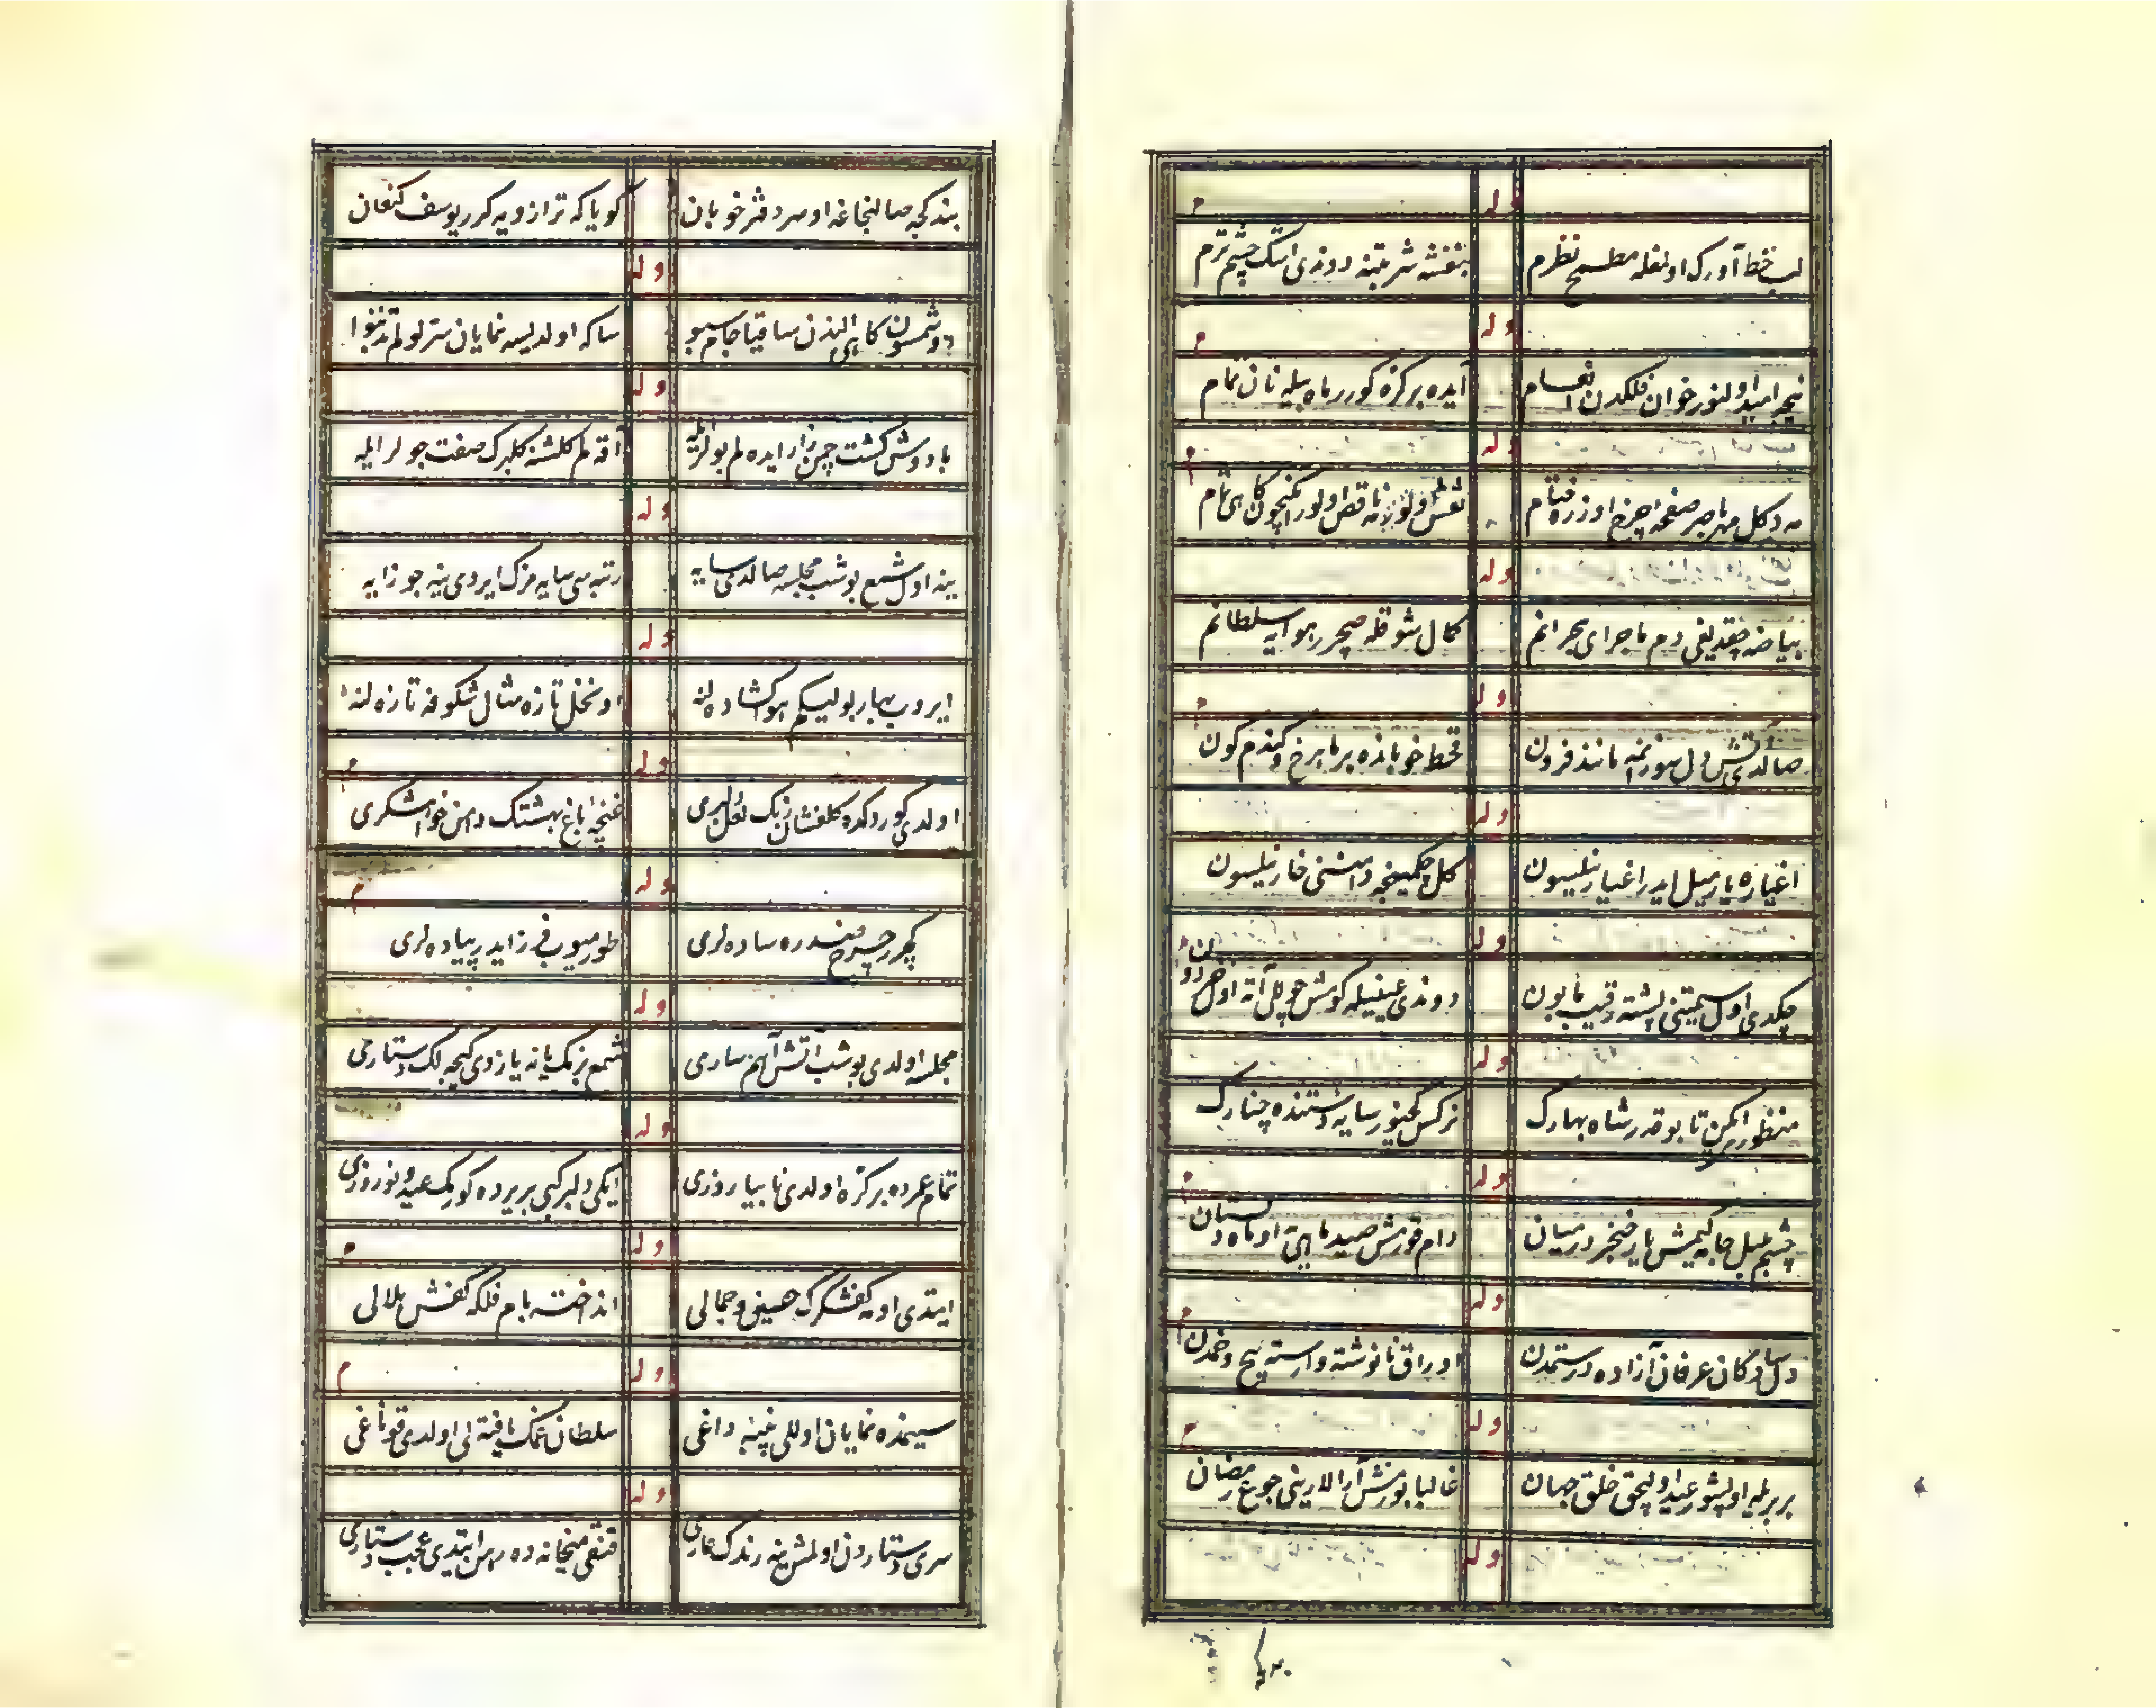 وله م
لب خط آورك اولغله مطمح نظرم بنفشه شربتنه دوندی اشك چشم ترم
وله م
نیجه امید اولنور خوان فلكدن انعام آیده بر كره كورر ماه بیله نان تمام
وله م
مه دكل مهر باصر صفحه چرخ اوزره نقش اولور ناقص اولور كاهی تمام
وله
بیاضه چقدیغی دم ماجرای بحرانم كمال شوقله صیچرر هوایه سلطانم
وله م
صالدی آتش دل سوزانمه مانند فرون قحط خوبانده بر ماهرخ كندم كون
وله
اغیاره یار میل ایدر اغیار نیلسون كل چكمینجه دامننی خار نیلسون
وله
چكدی اول سیمتنی پشته رقیب مابون دوندی عینیله كومش چوللی آته اول
وله
منظور ایكن تا بو قدر شاه بهارك نركس كچنور سایه دستنده چنارك
وله م
چشم بلبل جامه كیمش یار خنجر در میان دام قورمش صید ماهیته او ماه دلستان
وله م
دلسادكان عرفان آزاده در ستمدن اوراق نانوشته وارسته پیچ و خمدن
وله م
بربریله اولشور عید اولیجق خلق جهان غالبا بورمش آرالارینی جوع رمضان
وله
بند كچه صالنجاغه او سردفتر خوبان كویا كه ترازویه كرر یوسف كنعان
وله
دوشمسون كاهی الندن ساقیا جام سبو ساكه اولدیسه نمایان ستر لولم تدنبوا
وله
بادوش كشت چمنزار ایده لم بولریله آقه لم كلشنه كلبرك صفت جولر ایله
وله
ینه اول شمع بو شب مجلسه صالدی سایه رتبه سی سایه مزك ایردی ینه جوزایه
وله
ایروب بهار بولیسكم هوا كشاده لنه او نخل تازه مثال شكوفه تازه لنه
وله م
اولدی كوردكده كلفشان رنك لعل لبری غنچه باغ بهشتك دهن خواهشكری
وله م
كچرر چرخ صدره ساده لری طورمیوب فرزاید پیاده لری
وله
مجلسه اولدی بو شب آتش آهم ساری شمع بزمك یانه یازدی كیجه لك دستاری
وله
تمام عمرده بر كره اولدی نا بیا روزی ایكی دلبر كبی بریرده كورمك عید و نوروزی
وله م
ایتدی او مه كفشكرك حسن و جمالی انداخته بام فلكه كفش هلالی
وله م
سینمده نمایان اوللی پنبه داغی سلطان غمك یافته لی اولدی قوناغی
وله
سری دستاردن اولمش ینه رندك عاری قنقی میخانه ده رهن ایتدی عجب دستاری
بندكچه